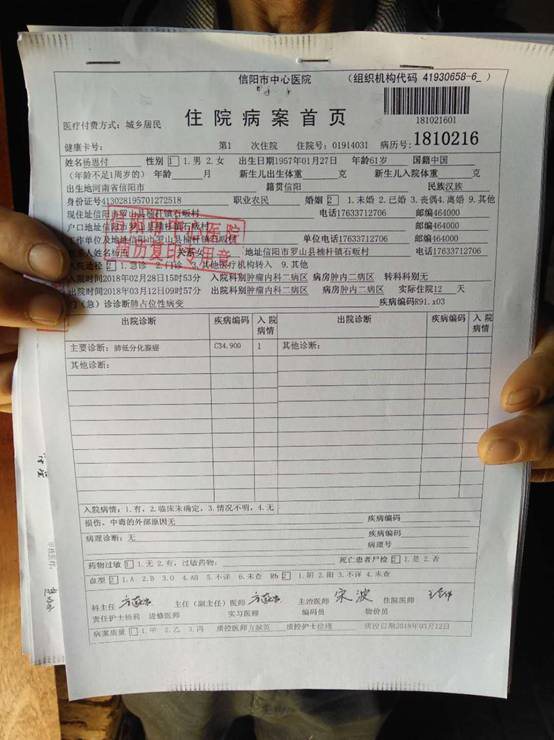 信阳市中心医院 (组织机构代码 41930658-6_)
181021601
住院病案首页
医疗付费方式: 城乡居民
健康卡号: 第1 次住院 住院号: 01914031 病历号: 1810216
姓名杨恩付 性别 1 1.男 2.女 出生日期1957年01月27日 年龄61岁 国籍中国
(年龄不足1周岁的) 年龄 月 新生儿出生体重 克 新生儿入院体重 克
出生地河南省信阳市 籍贯信阳 民族汉族
身份证号413028195701272518 职业农民 婚姻 2 1.未婚 2.已婚 3.丧偶 4.离婚 9.其他
现住址信阳市罗山县楠杆镇石畈村 电话17633712706 邮编464000
户口地址信阳市罗山县楠杆镇石畈村 邮编464000
工作单位及地址信阳市罗山县楠杆镇石畈村 单位电话17633712706 邮编464000
地址信阳市罗山县楠杆镇石畈村 电话17633712706
入院途径 2 1.急诊 2.门诊 3.其他医疗机构转入 9.其他
入院时间2018年02月28日15时53分 入院科别肿瘤内科二病区 病房肿内二病区 转科科别无
出院时间2018年03月12日09时57分 出院科别肿瘤内科二病区 病房肿内二病区 实际住院12 天
门(急)诊诊断肺占位性病变 疾病编码R91.x03
出院诊断 疾病编码 入院病情 出院诊断 疾病编码 入院病情
主要诊断: 肺低分化腺癌 C34.900 1 其他诊断:
其他诊断:
入院病情: 1.有, 2.临床未确定, 3.情况不明, 4.无
损伤、中毒的外部原因无 疾病编码
病理诊断: 无 疾病编码
病理号
药物过敏 1 1.无 2.有, 过敏药物: 死亡患者尸检 1.是 2.否
血型 1.A 2.B 3.O 4.AB 5.不详 6.未查 Rh 2 1.阴 2.阳 3.不详 4.未查
科主任 主任(副主任)医师 主治医师 宋波 住院医师
责任护士 进修医师 实习医师 编码员 物价员
病案质量 1.甲 2.乙 3.丙 质控医师 质控护士 质控日期2018年03月12日